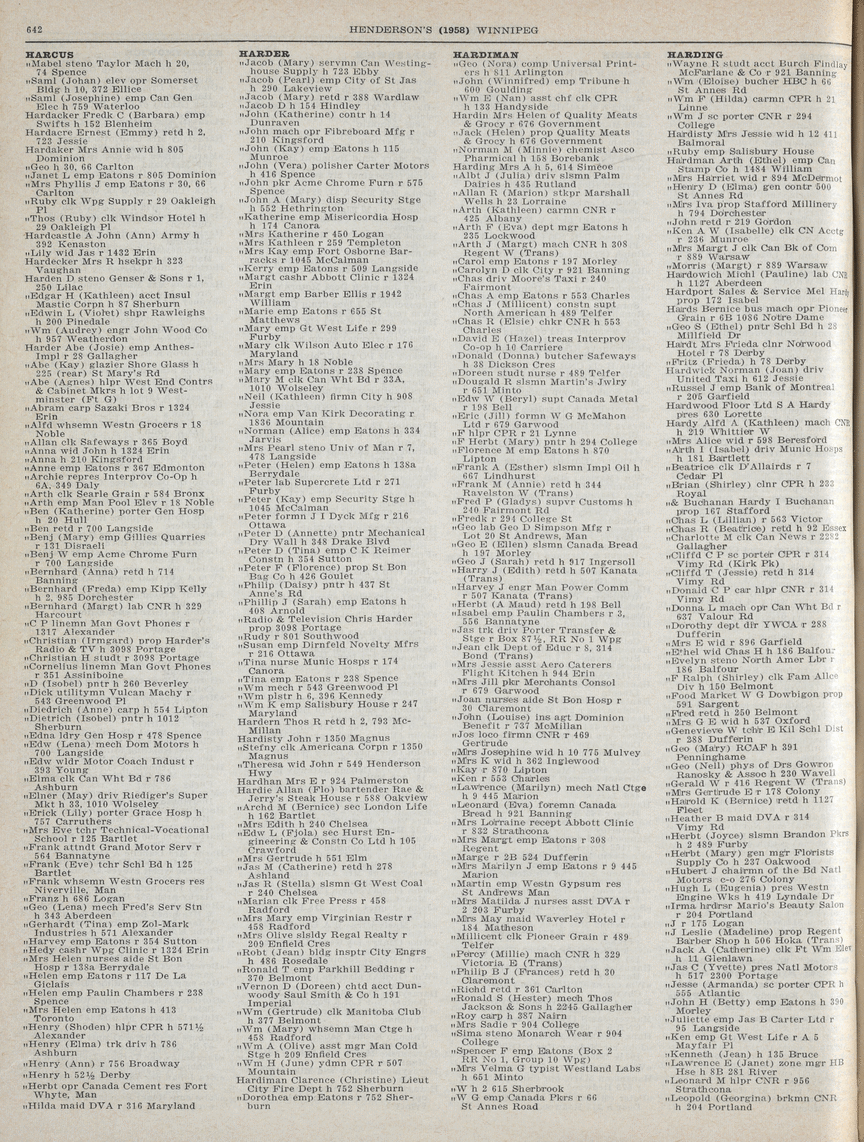 642
HENDERSON'S (1958) WINNIPEG
HARCUS
"Mabel steno Taylor Mach h 20,
74 Spence
"Saml (Johan) elev opr Somerset
Bldg h 10, 372 Ellice
"Saml (Josephine) emp Can Gen
Elec h 759 Waterloo
Hardacker Fredk C (Barbara) emp
Swifts h 152 Blenheim
Hardacre Ernest (Emmy) retd h 2,
723 Jessie
Hardaker Mrs Annie wid h 805
Dominion
"Geo h 30, 66 Carlton
"Janet L emp Eatons r 805 Dominion
"Mrs Phyllis J emp Eatons r 30, 66
Carlton
"Ruby clk Wpg Supply r 29 Oakleigh
Pl
"Thos (Ruby) clk Windsor Hotel h
29 Oakleigh Pl
Hardcastle A John (Ann) Army h
392 Kenaston
"Lily wid Jas r 1432 Erin
Hardecker Mrs R hsekpr h 323
Vaughan
Harden D steno Genser & Sons r 1,
250 Lilac
"Edgar H (Kathleen) acct Insul
Mastic Corpn h 87 Sherburn
"Edwin L (Violet) shpr Rawleighs
h 200 Pinedale
"Wm (Audrey) engr John Wood Co
h 957 Weatherdon
Harder Abe (Josie) emp Anthes-
Impl r 28 Gallagher
"Abe (Kay) glazier Shore Glass h
225 (rear) St Mary's Rd
"Abe (Agnes) hlpr West End Contrs
& Cabinet Mkrs h lot 9 West-
minster (Ft G)
"Abram carp Sazaki Bros r 1324
Erin
"Alfd whsemn Westn Grocers r 18
Noble
"Allan clk Safeways r 365 Boyd
"Anna wid John h 1324 Erin
"Anna h 210 Kingsford
"Anne emp Eatons r 367 Edmonton
"Archie repres Interprov Co-Op h
6A, 349 Daly
"Arth clk Searle Grain r 584 Bronx
"Arth emp Man Pool Elev r 18 Noble
"Ben (Katherine) porter Gen Hosp
h 20 Hull
"Ben retd r 700 Langside
"Benj (Mary) emp Gillies Quarries
r 131 Disraeli
"Benj W emp Acme Chrome Furn
r 700 Langside
"Bernhard (Anna) retd h 714
Banning
"Bernhard (Freda) emp Kipp Kelly
h 2, 985 Dorchester
"Bernhard (Margt) lab CNR h 329
Harcourt
"C P linemn Man Govt Phones r
1317 Alexander
"Christian (Irmgard) prop Harder's
Radio & TV h 3098 Portage
"Christian H studt r 3098 Portage
"Cornelius linemn Man Govt Phones
r 351 Assiniboine
"D (Isobel) pntr h 260 Beverley
"Dick utilitymn Vulcan Machy r
543 Greenwood Pl
"Diedrich (Anne) carp h 554 Lipton
"Dietrich (Isobel) pntr h 1012
Sherburn
"Edna ldry Gen Hosp r 478 Spence
"Edw (Lena) mech Dom Motors h
700 Langside
"Edw wldr Motor Coach Indust r
393 Young
"Elma clk Can Wht Bd r 786
Ashburn
"Elner (May) driv Riediger's Super
Mkt h 33, 1010 Wolseley
"Erick (Lily) porter Grace Hosp h
757 Carruthers
"Mrs Eve tchr Technical-Vocational
School r 125 Bartlet
"Frank attndt Grand Motor Serv r
564 Bannatyne
"Frank (Eve) tchr Schl Bd h 125
Bartlet
"Frank whsemn Westn Grocers res
Niverville, Man
"Franz h 686 Logan
"Geo (Lena) mech Fred's Serv Stn
h 343 Aberdeen
"Gerhardt (Tina) emp Zol-Mark
Industries h 571 Alexander
"Harvey emp Eatons r 354 Sutton
"Hedy cashr Wpg Clinic r 1324 Erin
"Mrs Helen nurses aide St Bon
Hosp r 138a Berrydale
"Helen emp Eatons r 117 De La
Giclais
"Helen emp Paulin Chambers r 238
Spence
"Mrs Helen emp Eatons h 413
Toronto
"Henry (Shoden) hlpr CPR h 571½
Alexander
"Henry (Elma) trk driv h 786
Ashburn
"Henry (Ann) r 756 Broadway
"Henry h 52½ Derby
"Herbt opr Canada Cement res Fort
Whyte, Man
"Hilda maid DVA r 316 Maryland
HARDER
"Jacob (Mary) servmn Can Westing-
house Supply h 723 Ebby
"Jacob (Pearl) emp City of St Jas
h 290 Lakeview
"Jacob (Mary) retd r 388 Wardlaw
"Jacob D h 154 Hindley
"John (Katherine) contr h 14
Dunraven
"John mach opr Fibreboard Mfg r
210 Kingsford
"John (Kay) emp Eatons h 115
Munroe
"John (Vera) polisher Carter Motors
h 416 Spence
"John pkr Acme Chrome Furn r 575
Spence
"John A (Mary) disp Security Stge
h 552 Hethrington
"Katherine emp Misericordia Hosp
h 174 Canora
"Mrs Katherine r 450 Logan
"Mrs Kathleen r 259 Templeton
"Mrs Kay emp Fort Osborne Bar-
racks r 1045 McCalman
"Kerry emp Eatons r 509 Langside
"Margt cashr Abbott Clinic r 1324
Erin
"Margt emp Barber Ellis r 1942
William
"Marie emp Eatons r 655 St
Matthews
"Mary emp Gt West Life r 299
Furby
"Mary clk Wilson Auto Elec r 176
Maryland
"Mrs Mary h 18 Noble
"Mary emp Eatons r 238 Spence
"Mary M clk Can Wht Bd r 33A,
1010 Wolseley
"Neil (Kathleen) firmn City h 908
Jessie
"Nora emp Van Kirk Decorating r
1836 Mountain
"Norman (Alice) emp Eatons h 334
Jarvis
"Mrs Pearl steno Univ of Man r 7,
478 Langside
"Peter (Helen) emp Eatons h 138a
Berrydale
"Peter lab Supercrete Ltd r 271
Furby
"Peter (Kay) emp Security Stge h
1045 McCalman
"Peter formn J I Dyck Mfg r 216
Ottawa
"Peter D (Annette) pntr Mechanical
Dry Wall h 348 Drake Blvd
"Peter D (Tina) emp C K Reimer
Constn h 354 Sutton
"Peter F (Florence) prop St Bon
Bag Co h 426 Goulet
"Philip (Daisy) pntr h 437 St
Anne's Rd
"Phillip J (Sarah) emp Eatons h
408 Arnold
"Radio & Television Chris Harder
prop 3098 Portage
"Rudy r 801 Southwood
"Susan emp Dirnfeld Novelty Mfrs
r 216 Ottawa
"Tina nurse Munic Hosps r 174
Canora
"Tina emp Eatons r 238 Spence
"Wm mech r 543 Greenwood Pl
"Wm plstr h 6, 396 Kennedy
"Wm K emp Salisbury House r 247
Maryland
Hardern Thos R retd h 2, 793 Mc-
Millan
Hardisty John r 1350 Magnus
"Stefny clk Americana Corpn r 1350
Magnus
"Theresa wid John r 549 Henderson
Hwy
Hardhan Mrs E r 924 Palmerston
Hardie Allan (Flo) bartender Rae &
Jerry's Steak House r 588 Oakview
"Archd M (Bernice) sec London Life
h 162 Bartlet
"Mrs Edith h 240 Chelsea
"Edw L (Fjola) sec Hurst En-
gineering & Constn Co Ltd h 105
Crawford
"Mrs Gertrude h 551 Elm
"Jas M (Catherine) retd h 278
Ashland
"Jas R (Stella) slsmn Gt West Coal
r 240 Chelsea
"Marian clk Free Press r 458
Radford
"Mrs Mary emp Virginian Restr r
458 Radford
"Mrs Olive slsldy Regal Realty r
209 Enfield Cres
"Robt (Jean) bldg insptr City Engrs
h 486 Rosedale
"Ronald T emp Parkhill Bedding r
370 Belmont
"Vernon D (Doreen) chtd acct Dun-
woody Saul Smith & Co h 191
Imperial
"Wm (Gertrude) clk Manitoba Club
h 377 Belmont
"Wm (Mary) whsemn Man Ctge h
458 Radford
"Wm A (Olive) asst mgr Man Cold
Stge h 209 Enfield Cres
"Wm H (June) ydmn CPR r 507
Mountain
Hardiman Clarence (Christine) Lieut
City Fire Dept h 752 Sherburn
"Dorothea emp Eatons r 752 Sher-
burn
HARDIMAN
"Geo (Nora) comp Universal Print-
ers h 811 Arlington
"John (Winnifred) emp Tribune h
600 Goulding
"Wm E (Nan) asst chf clk CPR
h 133 Handyside
Hardin Mrs Helen of Quality Meats
& Grocy r 676 Government
"Jack (Helen) prop Quality Meats
& Grocy h 676 Government
"Norman M (Minnie) chemist Asco
Pharmical h 158 Borebank
Harding Mrs A h 5, 614 Simcoe
"Albt J (Julia) driv slsmn Palm
Dairies h 435 Rutland
"Allan R (Marion) stkpr Marshall
Wells h 23 Lorraine
"Arth (Kathleen) carmn CNR r
425 Albany
"Arth F (Eva) dept mgr Eatons h
235 Lockwood
"Arth J (Margt) mach CNR h 308
Regent W (Trans)
"Carol emp Eatons r 197 Morley
"Carolyn D clk City r 921 Banning
"Chas driv Moore's Taxi r 240
Fairmont
"Chas A emp Eatons r 553 Charles
"Chas J (Millicent) constn supt
North American h 489 Telfer
"Chas R (Elsie) chkr CNR h 553
Charles
"David E (Hazel) treas Interprov
Co-op h 10 Carriere
"Donald (Donna) butcher Safeways
h 38 Dickson Cres
"Doreen studt nurse r 489 Telfer
"Dougald R slsmn Martin's Jwlry
r 651 Minto
"Edw W (Beryl) supt Canada Metal
r 198 Bell
"Eric (Jill) formn W G McMahon
Ltd r 679 Garwood
"F hlpr CPR r 21 Lynne
"F Herbt (Mary) pntr h 294 College
"Florence M emp Eatons h 870
Lipton
"Frank A (Esther) slsmn Impl Oil h
667 Lindhurst
"Frank M (Annie) retd h 344
Ravelston W (Trans)
"Fred P (Gladys) supvr Customs h
240 Fairmont Rd
"Fredk r 294 College St
"Geo lab Geo D Simpson Mfg r
Lot 20 St Andrews, Man
"Geo E (Ellen) slsmn Canada Bread
h 197 Morley
"Geo J (Sarah) retd h 917 Ingersoll
"Harry J (Edith) retd h 507 Kanata
(Trans)
"Harvey J engr Man Power Comm
r 507 Kanata (Trans)
"Herbt (A Maud) retd h 198 Bell
"Isabel emp Paulin Chambers r 3,
556 Bannatyne
"Jas trk driv Porter Transfer &
Stge r Box 87½, RR No 1 Wpg
"Jean clk Dept of Educ r 8, 314
Bond (Trans)
"Mrs Jessie asst Aero Caterers
Flight Kitchen h 944 Erin
"Mrs Jill pkr Merchants Consol
r 679 Garwood
"Joan nurses aide St Bon Hosp r
30 Claremont
"John (Louise) ins agt Dominion
Benefit r 737 McMillan
"Jos loco firmn CNR r 469
Gertrude
"Mrs Josephine wid h 10 775 Mulvey
"Mrs K wid h 362 Inglewood
"Kay r 870 Lipton
"Ken r 553 Charles
"Lawrence (Marilyn) mech Natl Ctge
h 9 445 Marion
"Leonard (Eva) foremn Canada
Bread h 921 Banning
"Mrs Lorraine recept Abbott Clinic
r 832 Strathcona
"Mrs Margt emp Eatons r 308
Regent
"Marge r 2B 524 Dufferin
"Mrs Marilyn J emp Eatons r 9 445
Marion
"Martin emp Westn Gypsum res
St Andrews Man
"Mrs Matilda J nurses asst DVA r
2 203 Furby
"Mrs May maid Waverley Hotel r
184 Matheson
"Millicent clk Pioneer Grain r 489
Telfer
"Percy (Millie) mach CNR h 329
Victoria E (Trans)
"Philip B J (Frances) retd h 30
Claremont
"Richd retd r 361 Carlton
"Ronald S (Hester) mech Thos
Jackson & Sons h 2245 Gallagher
"Roy carp h 387 Nairn
"Mrs Sadie r 904 College
"Sima steno Monarch Wear r 904
College
"Spencer F emp Eatons (Box 2
RR No 1, Group 10 Wpg)
"Mrs Velma G typist Westland Labs
h 651 Minto
"W h 2 615 Sherbrook
"W G emp Canada Pkrs r 66
St Annes Road
HARDING
"Wayne R studt acct Burch Findlay
McFarlane & Co r 921 Banning
"Wm (Eloise) bucher HBC h 66
St Annes Rd
"Wm F (Hilda) carmn CPR h 21
Linne
"Wm J sc porter CNR r 294
College
Hardisty Mrs Jessie wid h 12 411
Balmoral
"Ruby emp Salisbury House
Hardman Arth (Ethel) emp Can
Stamp Co h 1484 William
"Mrs Harriet wid r 894 McDermot
"Henry D (Elma) gen contr 500
St Annes Rd
"Mrs Iva prop Stafford Millinery
h 794 Dorchester
"John retd r 219 Gordon
"Ken A W (Isabelle) clk CN Acctg
r 236 Munroe
"Mrs Margt J clk Can Bk of Com
r 889 Warsaw
"Morris (Margt) r 889 Warsaw
Hardowich Michl (Pauline) lab CNR
h 1127 Aberdeen
Hardport Sales & Service Mel Hardy
prop 172 Isabel
Hards Bernice bus mach opr Pioneer
Grain r 6B 1086 Notre Dame
"Geo S (Ethel) pntr Schl Bd h 28
Millfield Dr
Hardt Mrs Frieda clnr Norwood
Hotel r 78 Derby
"Fritz (Frieda) h 78 Derby
Hardwick Norman (Joan) driv
United Taxi h 612 Jessie
"Russel J emp Bank of Montreal
r 205 Garfield
Hardwood Floor Ltd S A Hardy
pres 630 Lorette
Hardy Alfd A (Kathleen) mach CNR
h 219 Whittier W
"Mrs Alice wid r 598 Beresford
"Arth I (Isabel) driv Munic Hosps
h 181 Bartlett
"Beatrice clk D'Allairds r 7
Cedar Pl
"Brian (Shirley) clnr CPR h 233
Royal
"& Buchanan Hardy I Buchanan
prop 167 Stafford
"Chas L (Lillian) r 563 Victor
"Chas R (Beatrice) retd h 92 Essex
"Charlotte M clk Can News r 2282
Gallagher
"Cliffd C P sc porter CPR r 314
Vimy Rd (Kirk Pk)
"Cliffd T (Jessie) retd h 314
Vimy Rd
"Donald C P car hlpr CNR r 314
Vimy Rd
"Donna L mach opr Can Wht Bd r
637 Valour Rd
"Dorothy dept dir YWCA r 288
Dufferin
"Mrs E wid r 896 Garfield
"Ethel wid Chas H h 186 Balfour
"Evelyn steno North Amer Lbr r
186 Balfour
"F Ralph (Shirley) clk Fam Allce
Div h 150 Belmont
"Food Market W G Dowbigon prop
591 Sargent
"Fred retd h 250 Belmont
"Mrs G E wid h 537 Oxford
"Genevieve W tchr E Kil Schl Dist
r 288 Dufferin
"Geo (Mary) RCAF h 391
Penninghame
"Geo (Nell) phys of Drs Gowron
Ranosky & Assoc h 230 Wavell
"Gerald W r 416 Regent W (Trans)
"Mrs Gertrude E r 178 Colony
"Harold K (Bernice) retd h 1127
Fleet
"Heather B maid DVA r 314
Vimy Rd
"Herbt (Joyce) slsmn Brandon Pkrs
h 2 489 Furby
"Herbt (Mary) gen mgr Florists
Supply Co h 237 Oakwood
"Hubert J chairmn of the Bd Natl
Motors c-o 276 Colony
"Hugh L (Eugenia) pres Westn
Engine Wks h 419 Lyndale Dr
"Irma hrdrsr Mario's Beauty Salon
r 204 Portland
"J r 175 Logan
"J Leslie (Madeline) prop Regent
Barber Shop h 506 Hoka (Trans)
"Jack A (Catherine) clk Ft Wm Elev
h 11 Glenlawn
"Jas C (Yvette) pres Natl Motors
h 517 2300 Portage
"Jesse (Armanda) sc porter CPR h
555 Atlantic
"John H (Betty) emp Eatons h 390
Morley
"Juliette emp Jas B Carter Ltd r
95 Langside
"Ken emp Gt West Life r A 5
Mayfair Pl
"Kenneth (Jean) h 135 Bruce
"Lawrence E (Janet) zone mgr HB
Hse h 8B 281 River
"Leonard M hlpr CNR r 956
Strathcona
"Leopold (Georgina) brkmn CNR
h 204 Portland